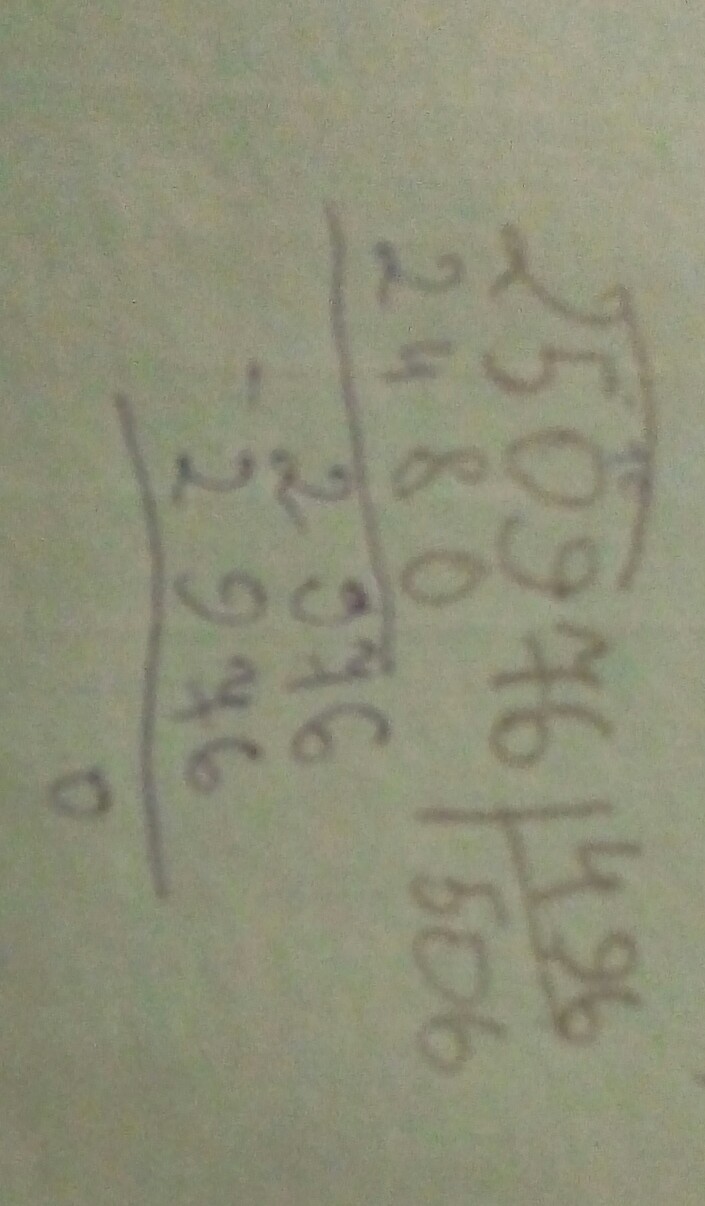 250976 | 496
2480 506
2976
- 2976
0